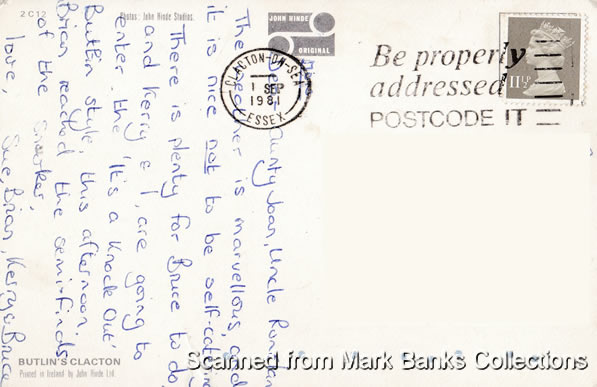 2C12
Photos: John Hinde Studios.
JOHN HINDE
ORIGINAL
CLACTON-ON-SEA
1 SEP
1981
ESSEX
Be properly
addressed
POSTCODE IT
11½P
Aunty Joan, Uncle Ron,
The weather is marvellous, and
it is nice not to be self-
There is plenty for Bruce to do,
and Kerry & I, are going to
enter the 'It's a Knock Out'
Butlin style, this afternoon.
Brian reached the semi-finals
of the snooker.
love, Sue, Brian, Kerry & Bruce
BUTLIN'S CLACTON
Printed in Ireland by John Hinde Ltd.
Scanned from Mark Banks Collections